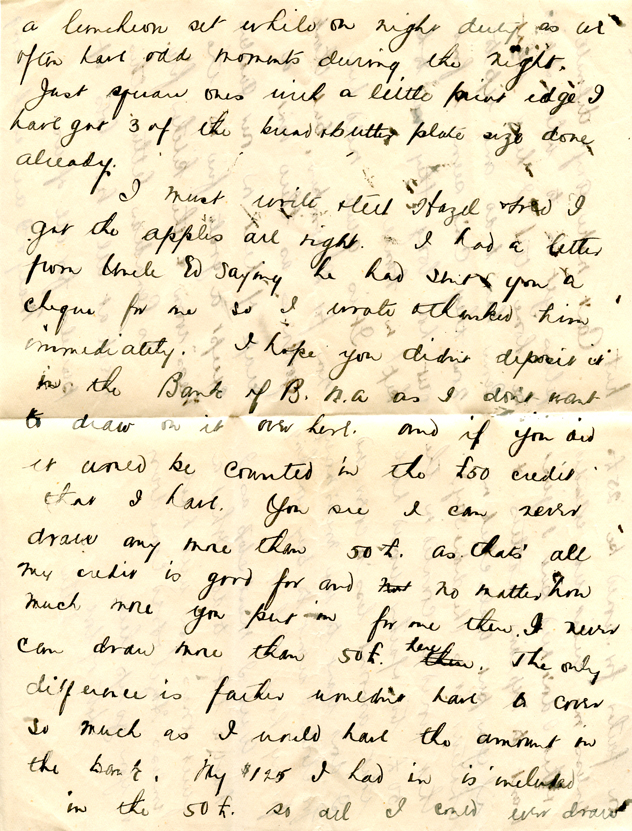 a luncheon set while on night duty as we
often have odd moments during the night.
Just square ones with a little point edge I
have got 3 of the bread & butter plate size done
already.
I must write & tell Hazel & Fred I
got the apples all right. I had a letter
from Uncle Ed saying he had sent you a
cheque for me so I wrote & thanked him
immediately. I hope you didn't deposit it
in the Bank of B. N. A as I don't want
to draw on it over here. and if you did
it would be counted in the £50 credit
that I have. You see I can never
draw any more than 50£. as that's all
my credit is good for and not no matter how
much more you put in for me then I never
can draw more than 50£. here then. The only
difference is father wouldn't have to cover
so much as I would have the amount in
the bank. My $125 I had in is included
in the 50£. so all I could ever draw